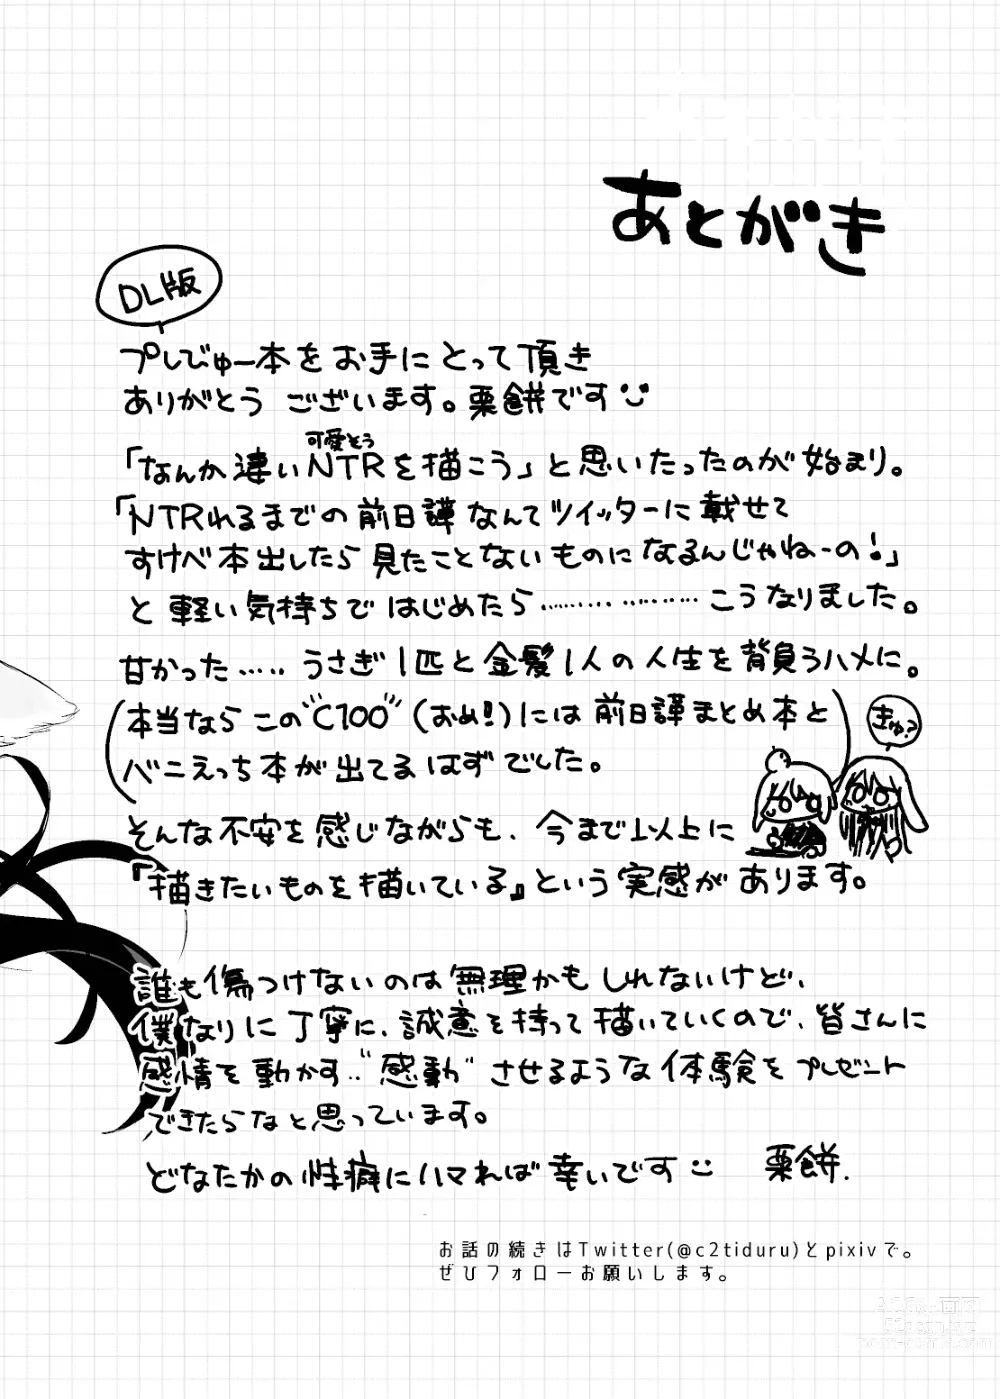 あとがき
DL版
プレびゅー本をお手にとって頂き
ありがとう ございます。栗餅です
可愛そう
「なんか違いNTRを描こう」と思いたったのが始まり。
「NTRれるまでの前日譚なんてツイッターに載せて
すけべ本出したら見たことないものになるんじゃねーの!」
と軽い気持ちではじめたら………………こうなりました。
甘かった……うさぎ1匹と金髪1人の人生を背負うハメに。
(本当ならこの"C100"(おめ!)には前日譚まとめ本と
べニえっち本が出てるはずでした。)
きゅ?
そんな不安を感じながらも、今まで以上に
『描きたいものを描いている』という実感があります。
誰も傷つけないのは無理かもしれないけど、
僕なりに丁寧に、誠意を持って描いていくので、皆さんに
感情を動かす…"感動"させるような体験をプレゼント
できたらなと思っています。
どなたかの性癖にハマれば幸いです 栗餅.
お話の続きはTwitter(@c2tiduru)とpixivで。
ぜひフォローお願いします。